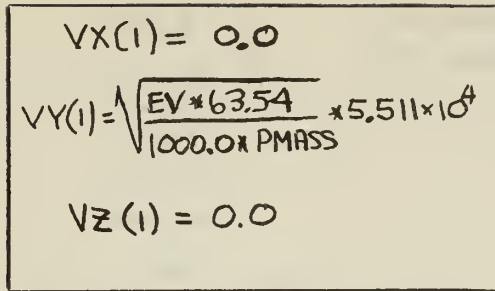 VX(1) = 0.0
VY(1) = √(EV*63.54 / 1000.0* PMASS) *5.511×10⁴
VZ(1) = 0.0